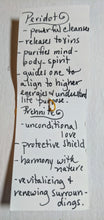 Peridot
- powerful cleanser
- releases toxins
- purifies mind-
body-spirit
- guides one to
align to higher
energies & understand
life purpose.
- unconditional
love
- protective shield
- harmony with
nature
- revitalizing &
renewing surroun-
dings.